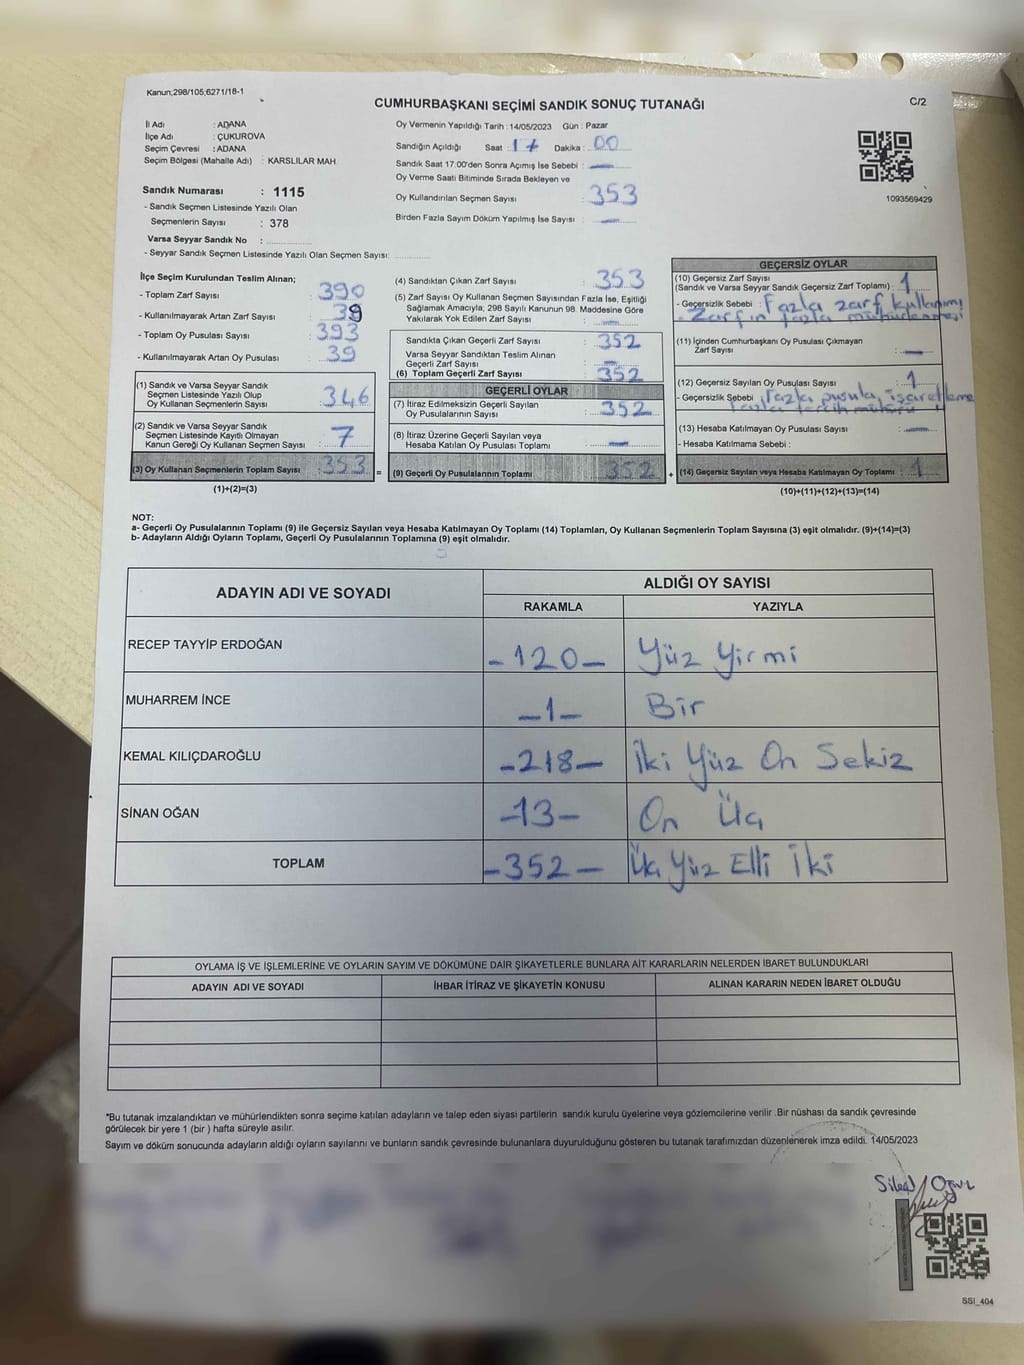 Kanun,298/105,6271/18-1
CUMHURBAŞKANI SEÇİMİ SANDIK SONUÇ TUTANAĞI
C/2
İl Adı : ADANA
İlçe Adı : ÇUKUROVA
Seçim Çevresi : ADANA
Seçim Bölgesi (Mahalle Adı) : KARSLILAR MAH.
Sandık Numarası : 1115
- Sandık Seçmen Listesinde Yazılı Olan
Seçmenlerin Sayısı : 378
Varsa Seyyar Sandık No :
- Seyyar Sandık Seçmen Listesinde Yazılı Olan Seçmen Sayısı:
Oy Vermenin Yapıldığı Tarih : 14/05/2023 Gün : Pazar
Sandığın Açıldığı Saat : 17 Dakika : 00
Sandık Saat 17:00'den Sonra Açımış İse Sebebi : —
Oy Verme Saati Bitiminde Sırada Bekleyen ve
Oy Kullandırılan Seçmen Sayısı : 353
Birden Fazla Sayım Döküm Yapılmış İse Sayısı : —
1093569429
İlçe Seçim Kurulundan Teslim Alınan;
- Toplam Zarf Sayısı : 390
- Kullanılmayarak Artan Zarf Sayısı : 39
- Toplam Oy Pusulası Sayısı : 393
- Kullanılmayarak Artan Oy Pusulası : 39
(1) Sandık ve Varsa Seyyar Sandık
Seçmen Listesinde Yazılı Olup
Oy Kullanan Seçmenlerin Sayısı : 346
(2) Sandık ve Varsa Seyyar Sandık
Seçmen Listesinde Kayıtlı Olmayan
Kanun Gereği Oy Kullanan Seçmen Sayısı : 7
(3) Oy Kullanan Seçmenlerin Toplam Sayısı : 353 =
(1)+(2)=(3)
(4) Sandıktan Çıkan Zarf Sayısı : 353
(5) Zarf Sayısı Oy Kullanan Seçmen Sayısından Fazla İse, Eşitliği
Sağlamak Amacıyla; 298 Sayılı Kanunun 98. Maddesine Göre
Yakılarak Yok Edilen Zarf Sayısı : —
Sandıkta Çıkan Geçerli Zarf Sayısı : 352
Varsa Seyyar Sandıktan Teslim Alınan
Geçerli Zarf Sayısı : —
(6) Toplam Geçerli Zarf Sayısı : 352
GEÇERLİ OYLAR
(7) İtiraz Edilmeksizin Geçerli Sayılan
Oy Pusulalarının Sayısı : 352
(8) İtiraz Üzerine Geçerli Sayılan veya
Hesaba Katılan Oy Pusulası Toplamı : —
(9) Geçerli Oy Pusulalarının Toplamı : 352 +
GEÇERSİZ OYLAR
(10) Geçersiz Zarf Sayısı
(Sandık ve Varsa Seyyar Sandık Geçersiz Zarf Toplamı) : 1
- Geçersizlik Sebebi : Fazla zarf kullanımı
- Zarfın fazla mühürlenmesi
(11) İçinden Cumhurbaşkanı Oy Pusulası Çıkmayan
Zarf Sayısı : —
(12) Geçersiz Sayılan Oy Pusulası Sayısı : 1
- Geçersizlik Sebebi : Fazla pusula, işaretleme
Fazla tercih mühürü
(13) Hesaba Katılmayan Oy Pusulası Sayısı : —
- Hesaba Katılmama Sebebi :
(14) Geçersiz Sayılan veya Hesaba Katılmayan Oy Toplamı : 1
(10)+(11)+(12)+(13)=(14)
NOT:
a- Geçerli Oy Pusulalarının Toplamı (9) ile Geçersiz Sayılan veya Hesaba Katılmayan Oy Toplamı (14) Toplamları, Oy Kullanan Seçmenlerin Toplam Sayısına (3) eşit olmalıdır. (9)+(14)=(3)
b- Adayların Aldığı Oyların Toplamı, Geçerli Oy Pusulalarının Toplamına (9) eşit olmalıdır.
ADAYIN ADI VE SOYADI
ALDIĞI OY SAYISI
RAKAMLA YAZIYLA
RECEP TAYYİP ERDOĞAN -120- Yüz Yirmi
MUHARREM İNCE -1- Bir
KEMAL KILIÇDAROĞLU -218- İki Yüz On Sekiz
SİNAN OĞAN -13- On Üç
TOPLAM -352- Üç Yüz Elli İki
OYLAMA İŞ VE İŞLEMLERİNE VE OYLARIN SAYIM VE DÖKÜMÜNE DAİR ŞİKAYETLERLE BUNLARA AİT KARARLARIN NELERDEN İBARET BULUNDUKLARI
ADAYIN ADI VE SOYADI İHBAR İTİRAZ VE ŞİKAYETİN KONUSU ALINAN KARARIN NEDEN İBARET OLDUĞU
*Bu tutanak imzalandıktan ve mühürlendikten sonra seçime katılan adayların ve talep eden siyasi partilerin sandık kurulu üyelerine veya gözlemcilerine verilir .Bir nüshası da sandık çevresinde
görülecek bir yere 1 (bir ) hafta süreyle asılır.
Sayım ve döküm sonucunda adayların aldığı oyların sayılarını ve bunların sandık çevresinde bulunanlara duyurulduğunu gösteren bu tutanak tarafımızdan düzenlenerek imza edildi. 14/05/2023
SSI_404